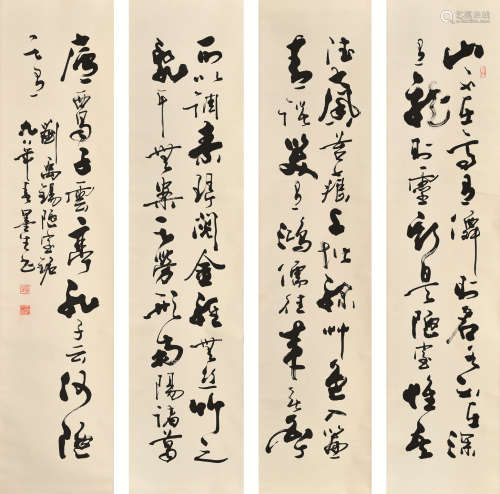 山不在高有僊則名水不在深
有龍則靈斯是陋室惟吾
德馨苔痕上階綠艸色入簾
青談笑有鴻儒往來無白丁
可以調素琴閱金經無丝竹之
亂耳無案牘勞形南陽諸葛
廬西蜀子雲亭孔子云何陋
之有
劉禹錫陋室銘